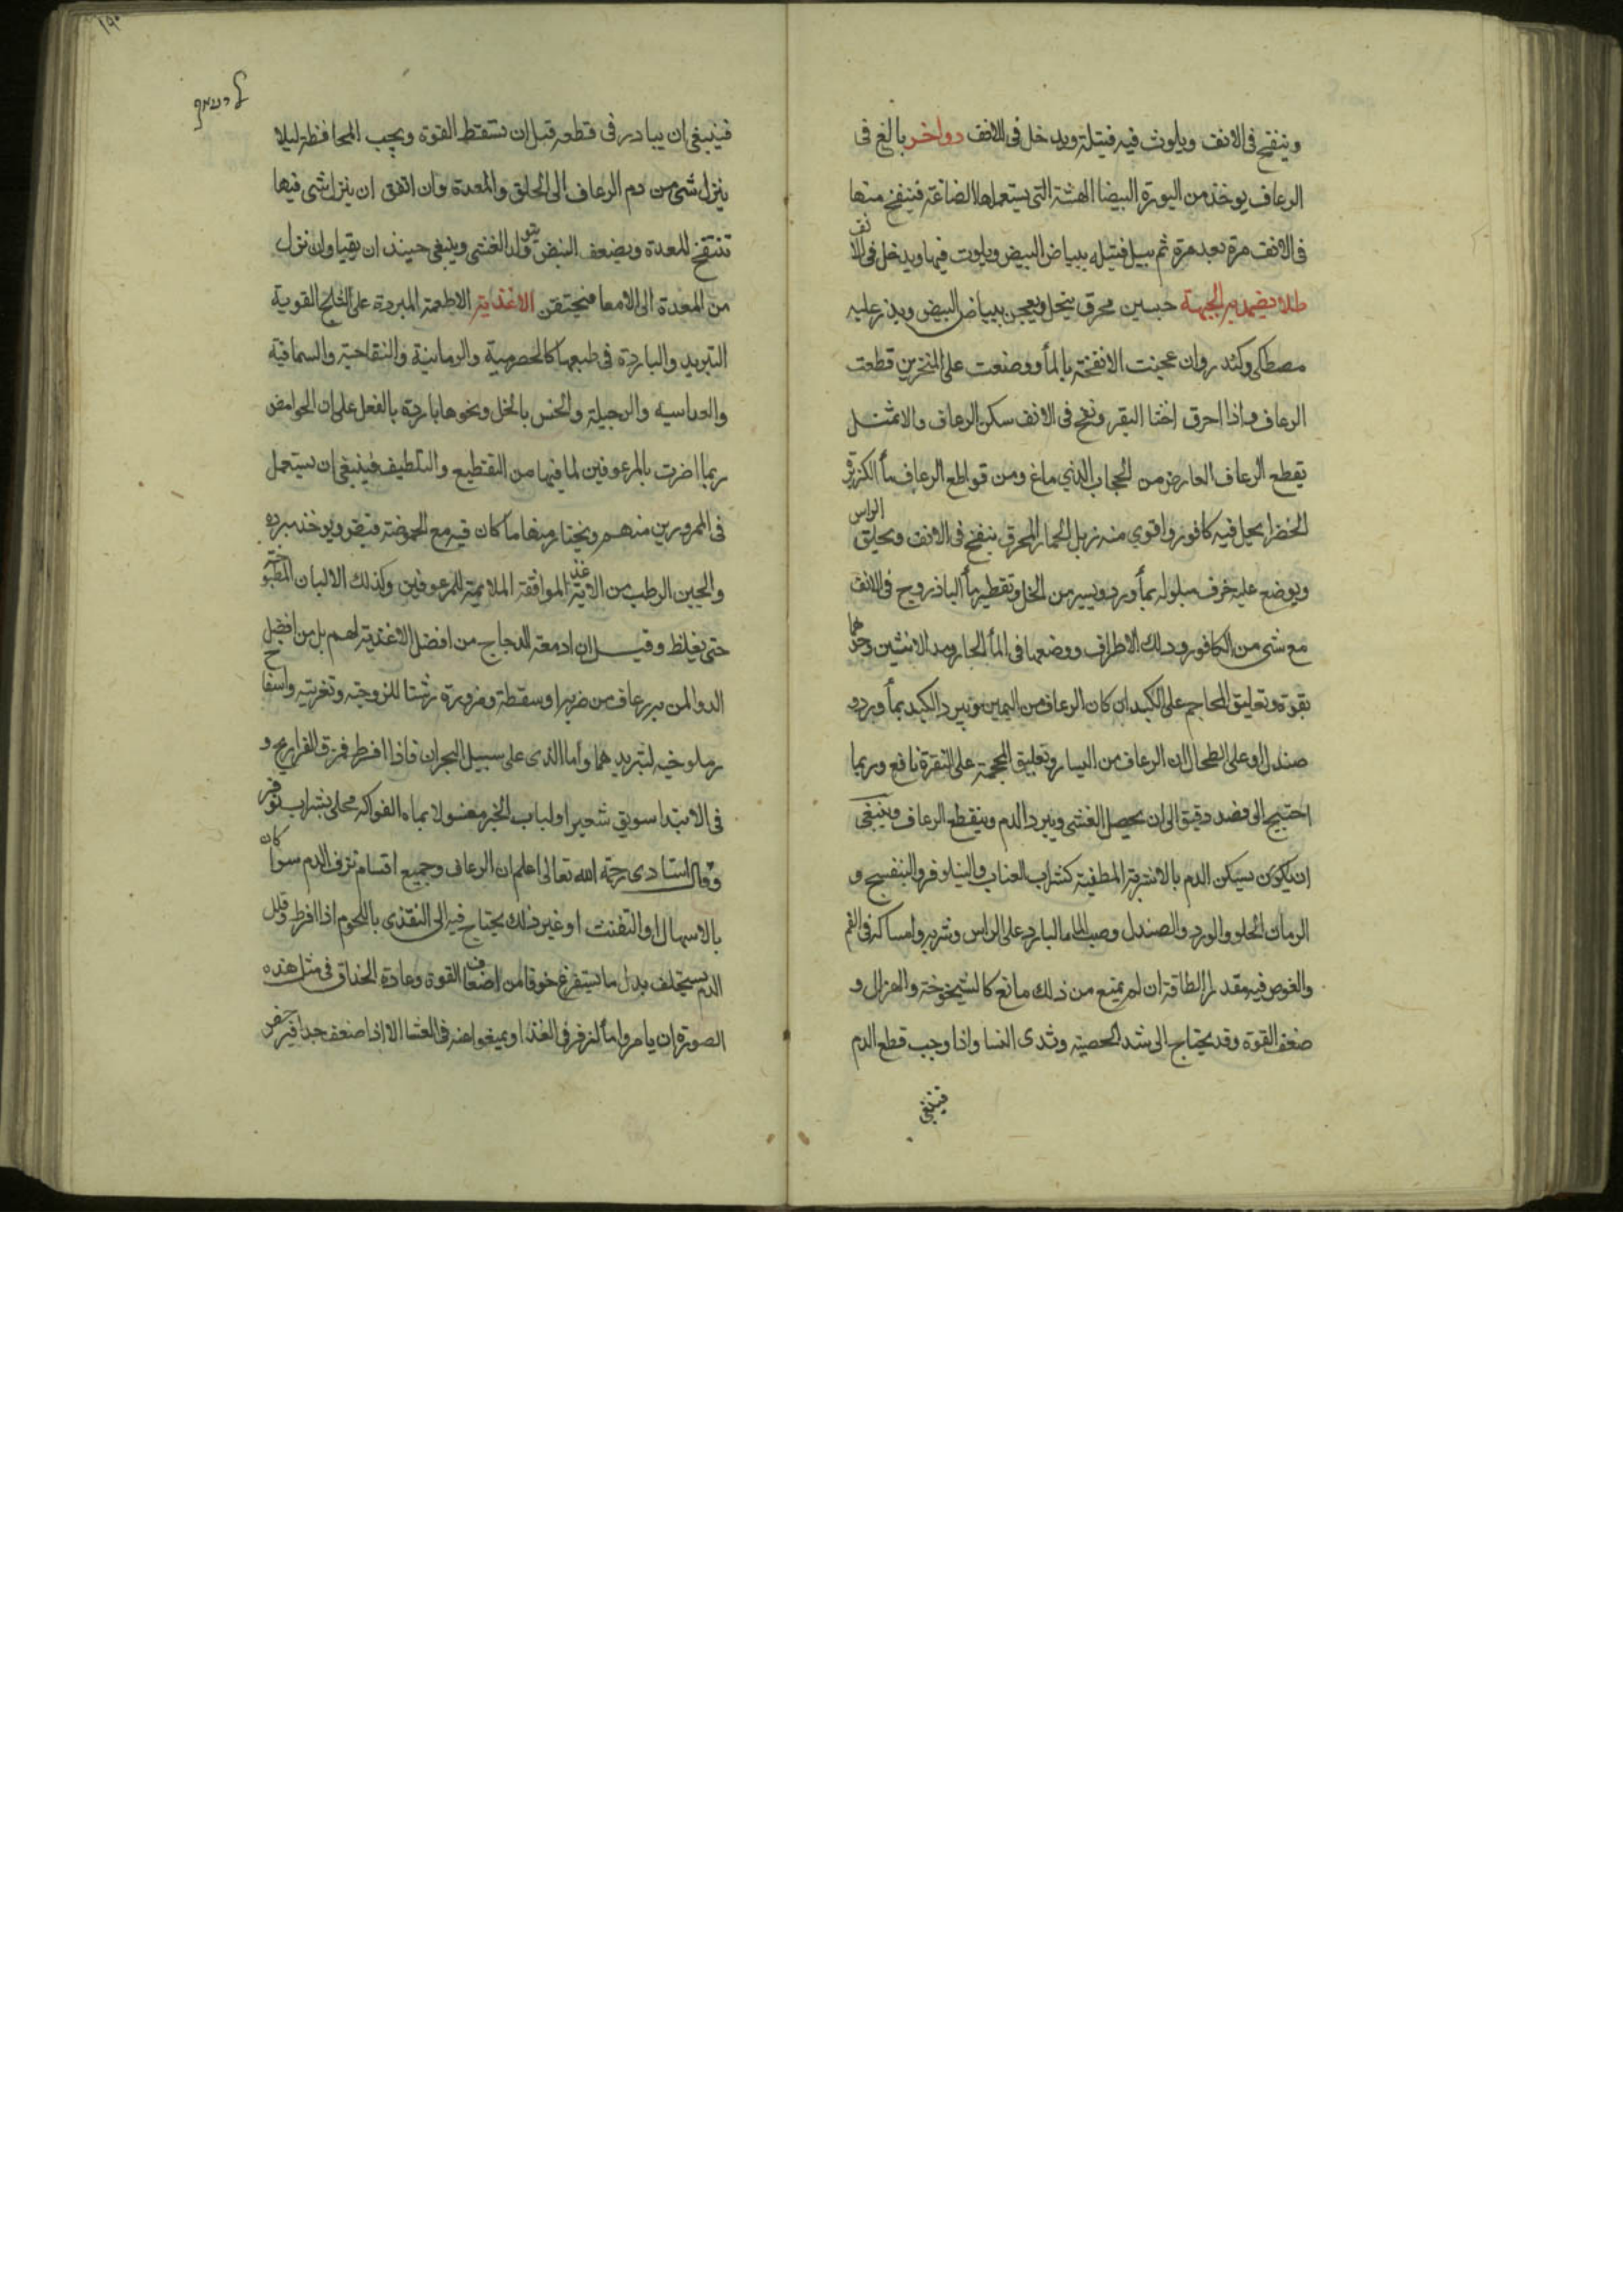 وينفخ فى الانف ويلوث فيه فتيلة ويدخل فى الانف دوا اخر بالغ فى
الرعاف يوخذ من البورة البيضا الهشة التى يستعملها الصاغة فينفخ منها
فى الانف مرة بعد مرة ثم يبل فتيله ببياض البيض ويلوث فيها ويدخل فى الانف
طلا يضمد به الجبهة جبسين محرق ينخل ويعجن ببياض البيض ويذر عليه
مصطكى وكندر وان عجنت الانفخة بالمأ ووضعت على المنخرين قطعت
الرعاف واذا احرق اخثا البقر ونفخ فى الانف سكن الرعاف والاثمد
يقطع الرعاف العارض من الحجاب الدماغ ومن قواطع الرعاف مأ الكزبرة
الخضرا يحل فيه كافور واقوي منه زبل الحمار المحرق ينفخ فى الانف ويحلق الراس
ويوضع عليه خرف مبلوله بمأ ورد ويسير من الخل وتقطير مأ الباذروج فى الانف
مع شى من الكافور ودلك الاطراف ووضعها فى المأ الحار ومد الانثيين وجذبهما
بقوة وتعليق المحاجم على الكبد ان كان الرعاف من اليمين وتبريد الكبد بمأ ورد و
صندل او على الطحال ان الرعاف من اليسار وتعليق المحجمة على النقرة نافع وربما
احتيج الى فصد دقيق الى ان يحصل الغشى ويبرد الدم وينقطع الرعاف وينبغى
ان يكون تسكين الدم بالاشربة المطفية كشراب العناب والنيلوفر والبنفسج و
الرمان الحلو والورد والصندل وصب الما البارد على الراس وشربه وامساكه فى الفم
والغوص فيه مقدار الطاقة ان لم يمنع من ذلك مانع كالشيخوخة والهزال و
ضعف القوة وقد يحتاج الى شد الخصية وثدى النسا واذا وجب قطع الدم
فينبغى
١٩٠
فينبغى ان يبادر فى قطعه قبل ان تسقط القوة ويجب المحافظة ليلا
ينزل شى من دم الرعاف الى الحلق والمعدة وان اتفق ان ينزل شى فيها
تنتفخ المعدة ويضعف النبض ويتولد الغشى وينبغى حينذ ان يقيا وان نزل
من المعدة الى الامعا فيحتقن الاغذية الاطعمة المبردة على الثلج القوية
التبريد والباردة فى طبعها كالحصرمية والرمانية والتفاحية والسماقية
والعداسيه والرجيلة والخس بالخل ونحوها باردة بالفعل على ان الحوامض
ربما اضرت بالمرعوفين لما فيها من التقطيع والتلطيف فينبغى ان يستعمل
فى المرورين منهم ويختار منها ما كان فيه مع الحموضة قبض ويوخذ مبرده
والجبن الرطب من الاغذية الموافقة الملايمة للمرعوفين وكذلك الالبان المطبوخة
حتى يغلظ وقيل ان ادمغة الدجاج من افضل الاغذية لهم بل من افضل
الدوا لمن به رعاف من ضربة او سقطة ومزورة رشتا للزوجته وتغريته واسفاناخ
وملوخيه لتبريدهما وأما الذى على سبيل البحران فاذا افرط فمرق الفراريج و
فى الابتدا سويق شعير او لباب الخبز مغسولا بماه الفواكه محلى بشراب نوفر
وقال استادى رحمة الله تعالى اعلم ان الرعاف وجميع اقسام نزف الدم سوا كان
بالاسهال او التفنث او غير ذلك يحتاج فيه الى التغذى باللحوم اذا افرط وقلل
الدم يستخلف بدل ما يستفرغ خوفا من اضعاف القوة وعادة الحذاق فى مثل هذه
الصورة ان يامروا بالمزفر فى الغذا ويمنعوا منه فى العشا الا اذا ضعف جدا